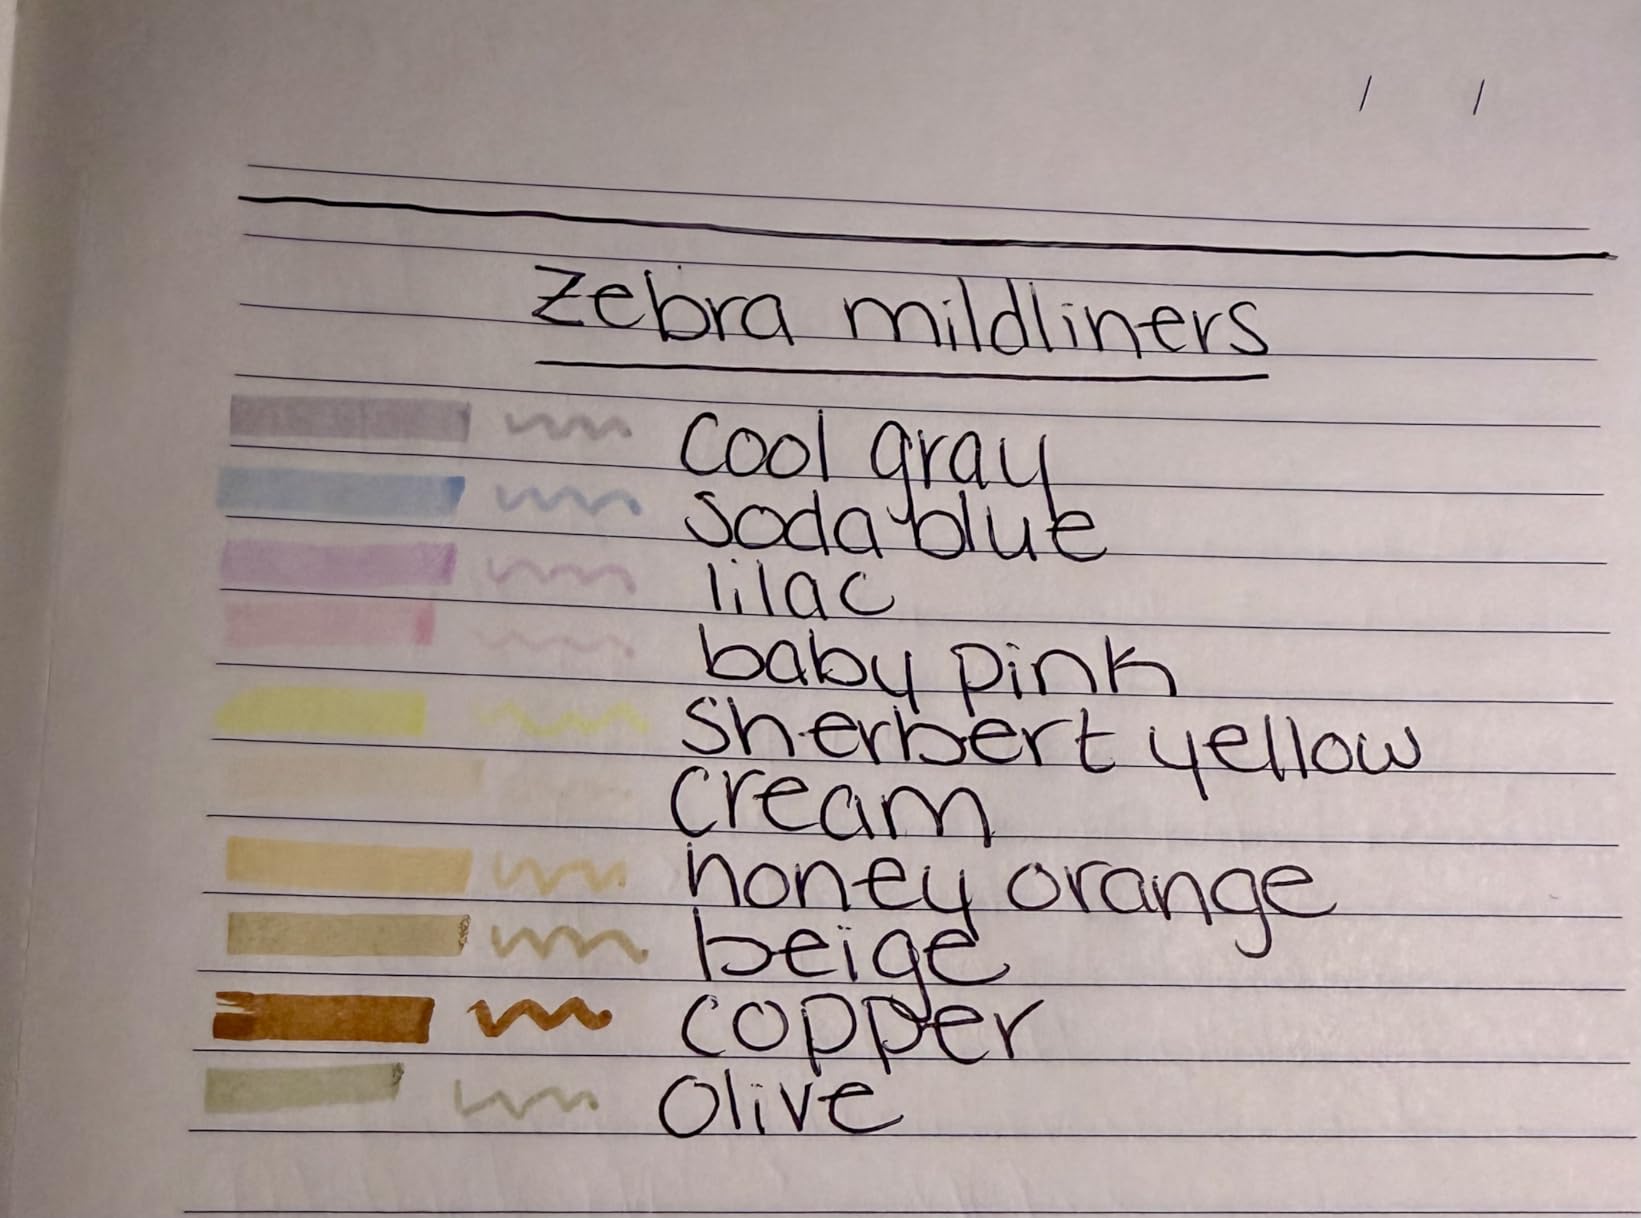 / /
Zebra mildliners
Cool gray
Soda blue
lilac
baby pink
Sherbert yellow
Cream
honey orange
beige
copper
Olive